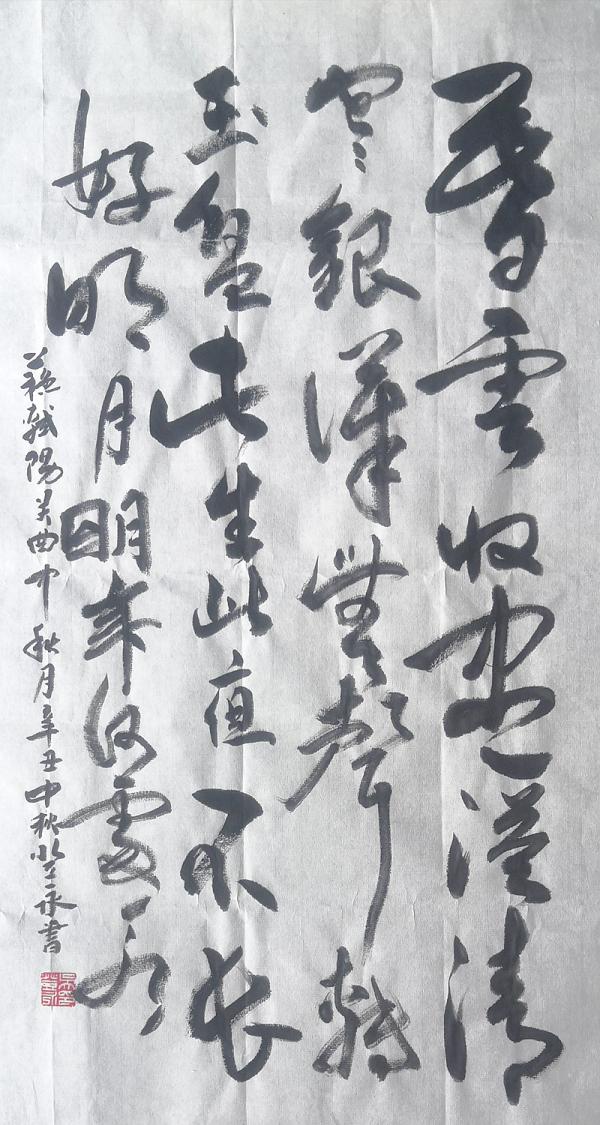 暮雲收盡溢清
寒銀漢無聲轉
玉盤此生此夜不長
好明月明年何處看
蘇軾陽關曲中秋月辛丑中秋永書